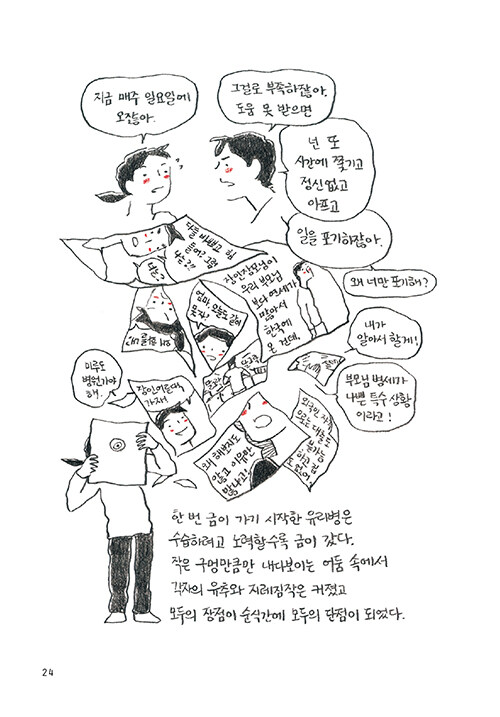 지금 매주 일요일에
오잖아.
그걸로 부족하잖아.
도움 못 받으면
넌 또
시간에 쫓기고
정신없고
아프고
일을 포기하잖아.
왜 너만 포기해?
내가
알아서 할게!
부모님 병세가
나쁜 특수 상황
이라고!
다들 바쁘고 힘
들어? 그럼
나는?!
장인장모님이
우리 부모님
보다 연세가
많아서
한국에
온 건데.
엄마, 오늘도 같이
못 자?
미루도
병원 가야
해.
장인어른대
가자
왜 해보지도
않고 이유만
많냐고!
한 번 금이 가기 시작한 유리병은
수습하려고 노력할수록 금이 갔다.
작은 구멍만큼만 내다보이는 어둠 속에서
각자의 유추와 지레짐작은 커졌고
모두의 장점이 순식간에 모두의 단점이 되었다.
24